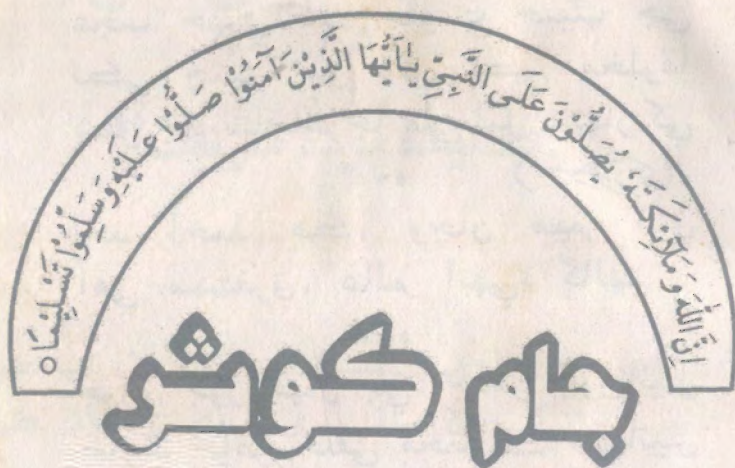 اِنَّ اللّٰهَ وَمَلٰٓئِكَتَهٗ، يُصَلُّوْنَ عَلَى النَّبِيِّ يٰٓاَيُّهَا الَّذِيْنَ ءَامَنُوْا صَلُّوْا عَلَيْهِ وَسَلِّمُوْا تَسْلِيْمًا ○
جام كوثر